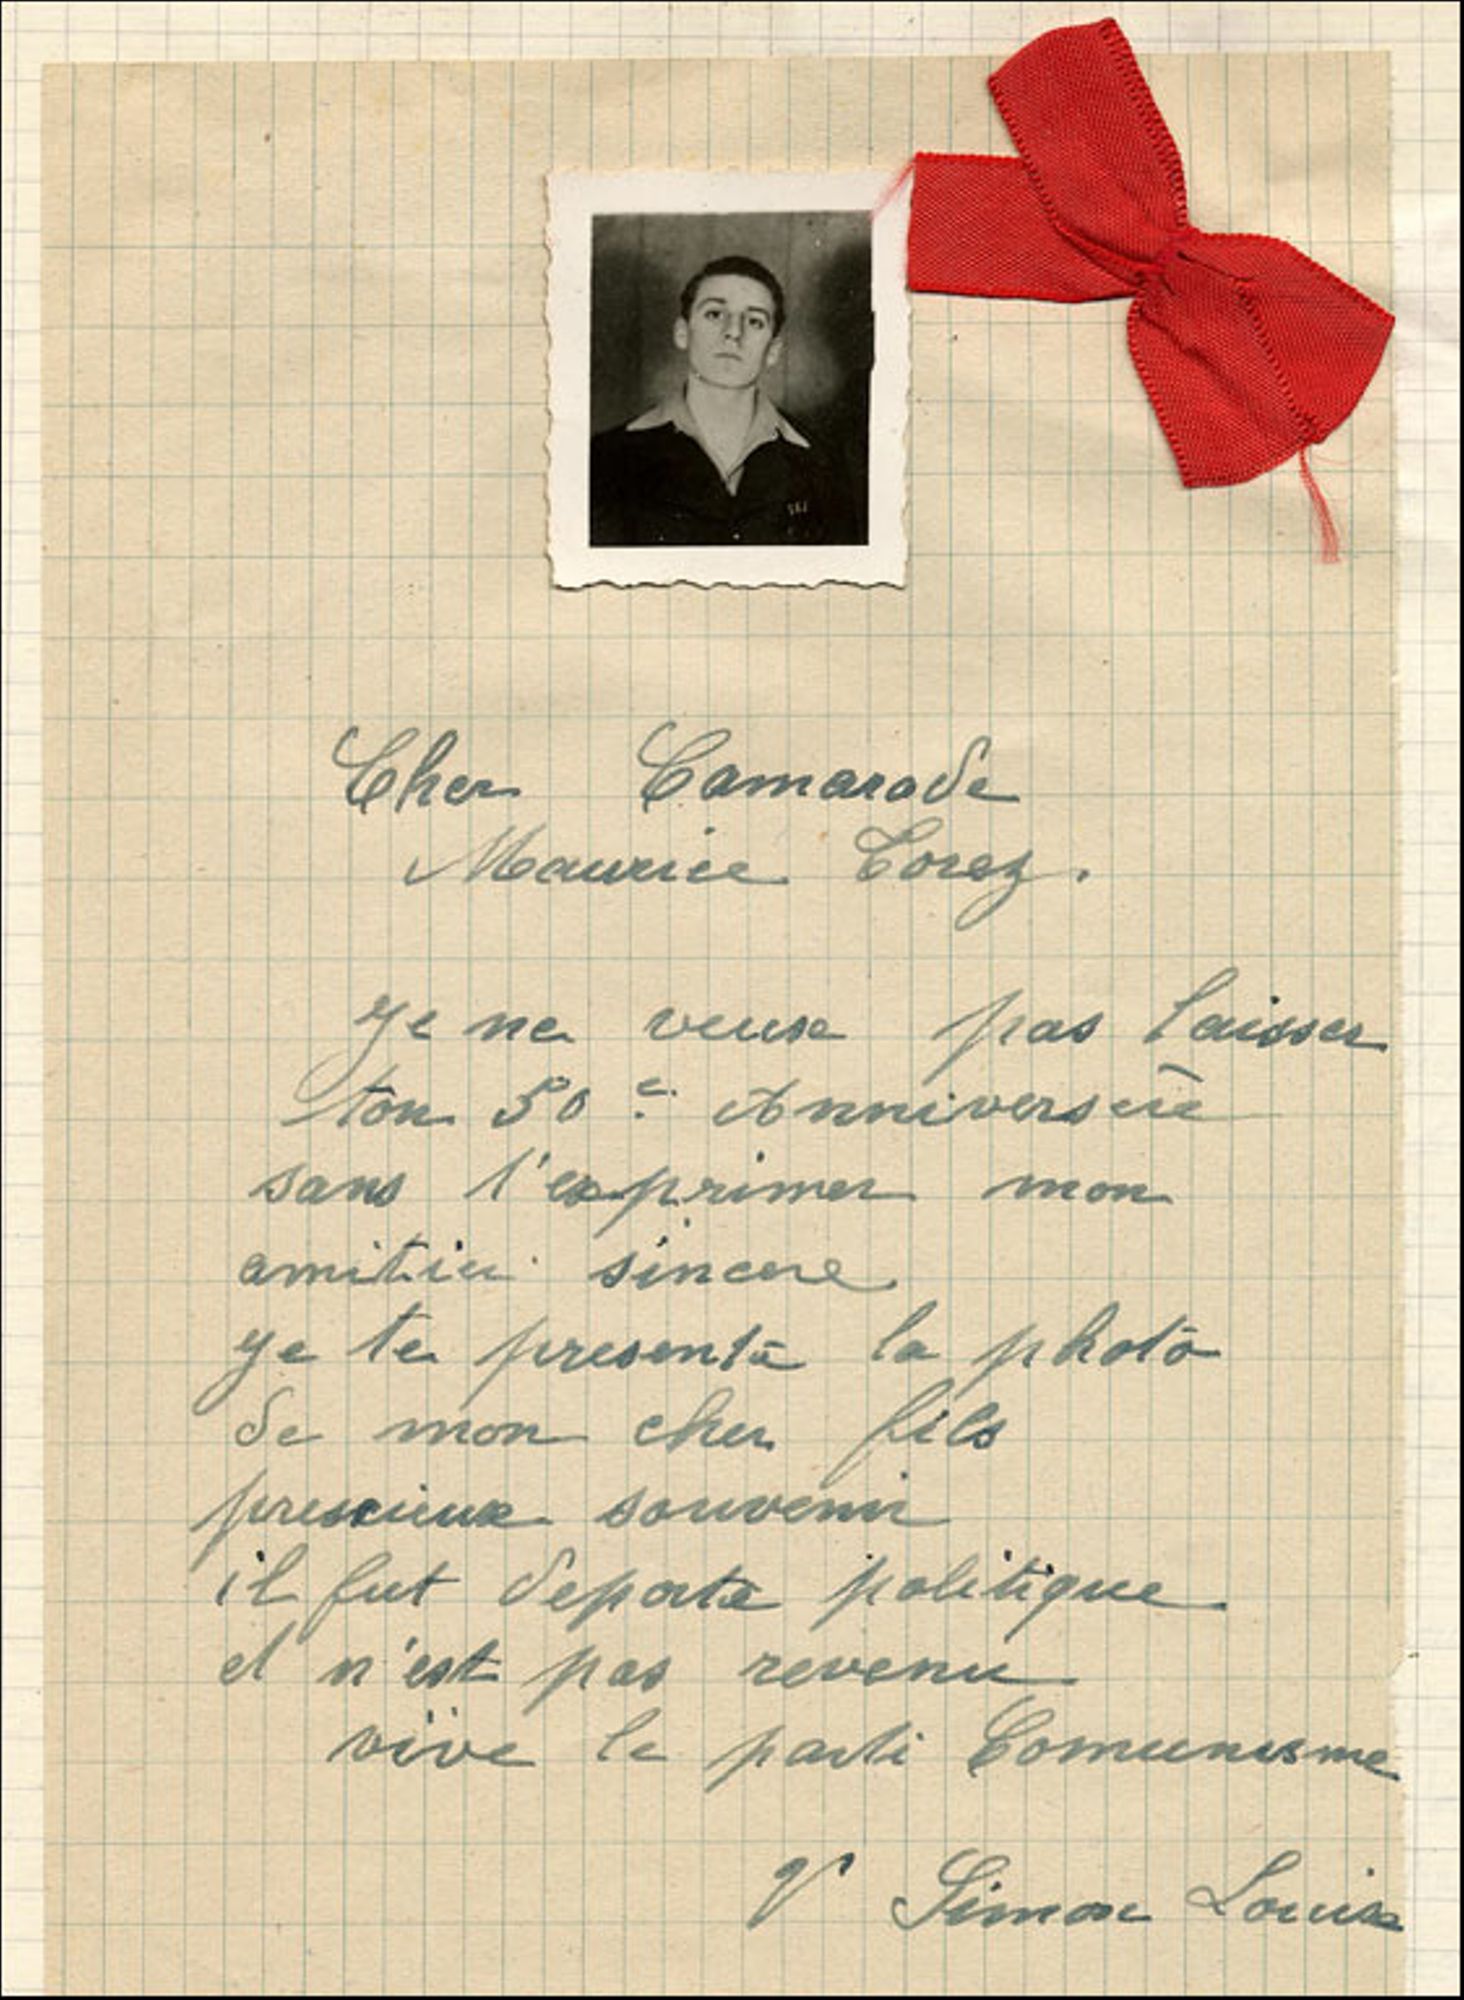 Cher Camarade
Maurice Torez.
Je ne veuse pas laisser
ton 50e Anniversere
sans t'exprimer mon
amitiei sincere
Je te presente la photo
de mon cher fils
prescieux souvenir
il fut deporte politique
et n'est pas revenu
vive le parti Comunisme
V Simon Louis